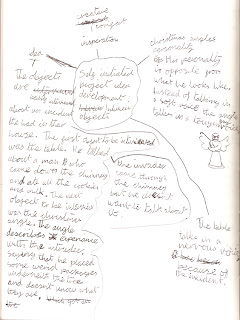 creative
project
inspiration
idea
1
Self initiated
project idea
development
objects
Christmas angles
personality
his personality
is opposite from
what he looks like.
Instead of talking in
a soft voice the angle
talk in a tough voice
The objects
are
about an incident
the had in their
house. The first object to be interviewed
was the table. He talked
about a man who
came down the chimney
and ate all the cookies
and milk. The next
object to be interview
was the christmas
angle. The angle
describes experience
with the intruder
saying that he placed
some weird packages
underneath the tree
and doesnt know what
they are.
the invader
came through
the chimney
but he didn't
want to talk about
it.
The table
talk in a
nervous voice
because of
the incident.